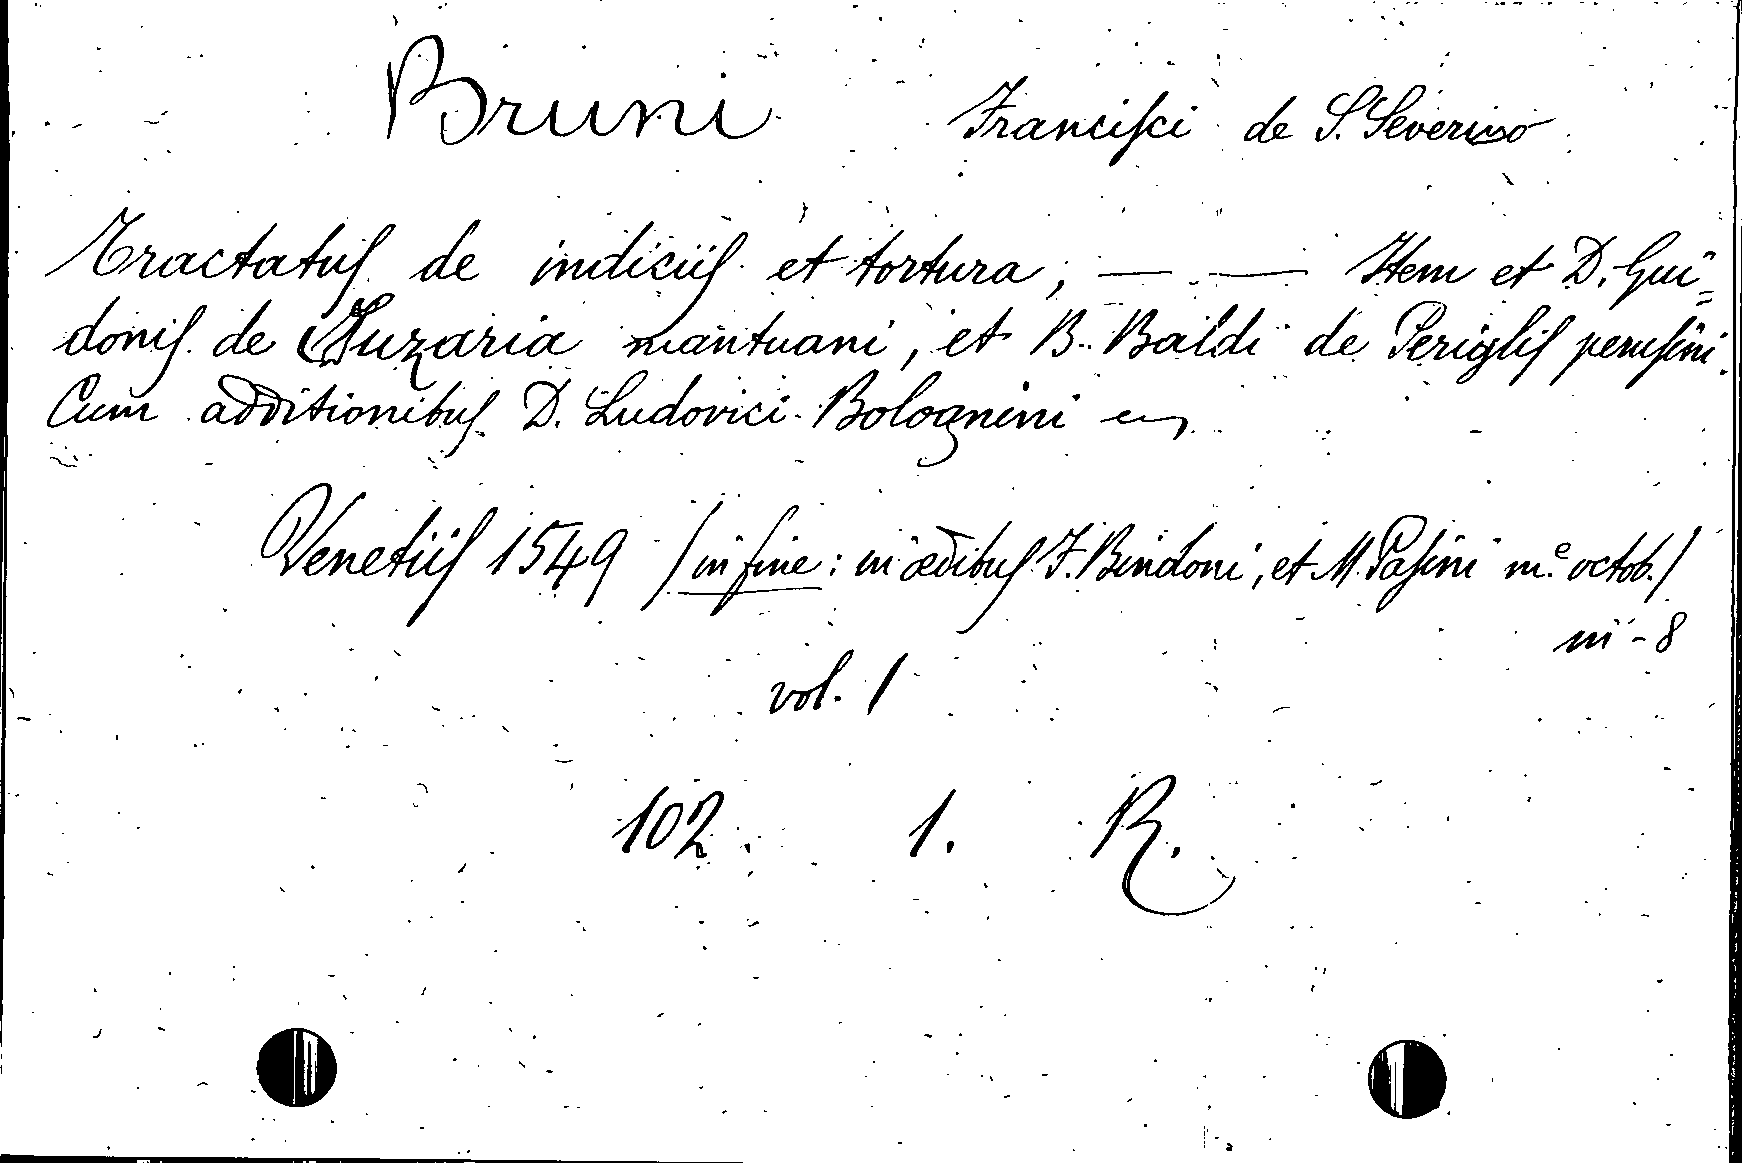 Bruni Francisci de S. Severino
Tractatus de indiciis et tortura, — — Item et D. Gui=
donis de Suzaria mantuani, et B. Baldi de Periglis perusini.
Cum additionibus D. Ludovici Bolognini
Venetiis 1549 / in fine: in ædibus F. Bindoni, et M. Pasini m.e octob./
in-8
vol. 1
102. 1. R.